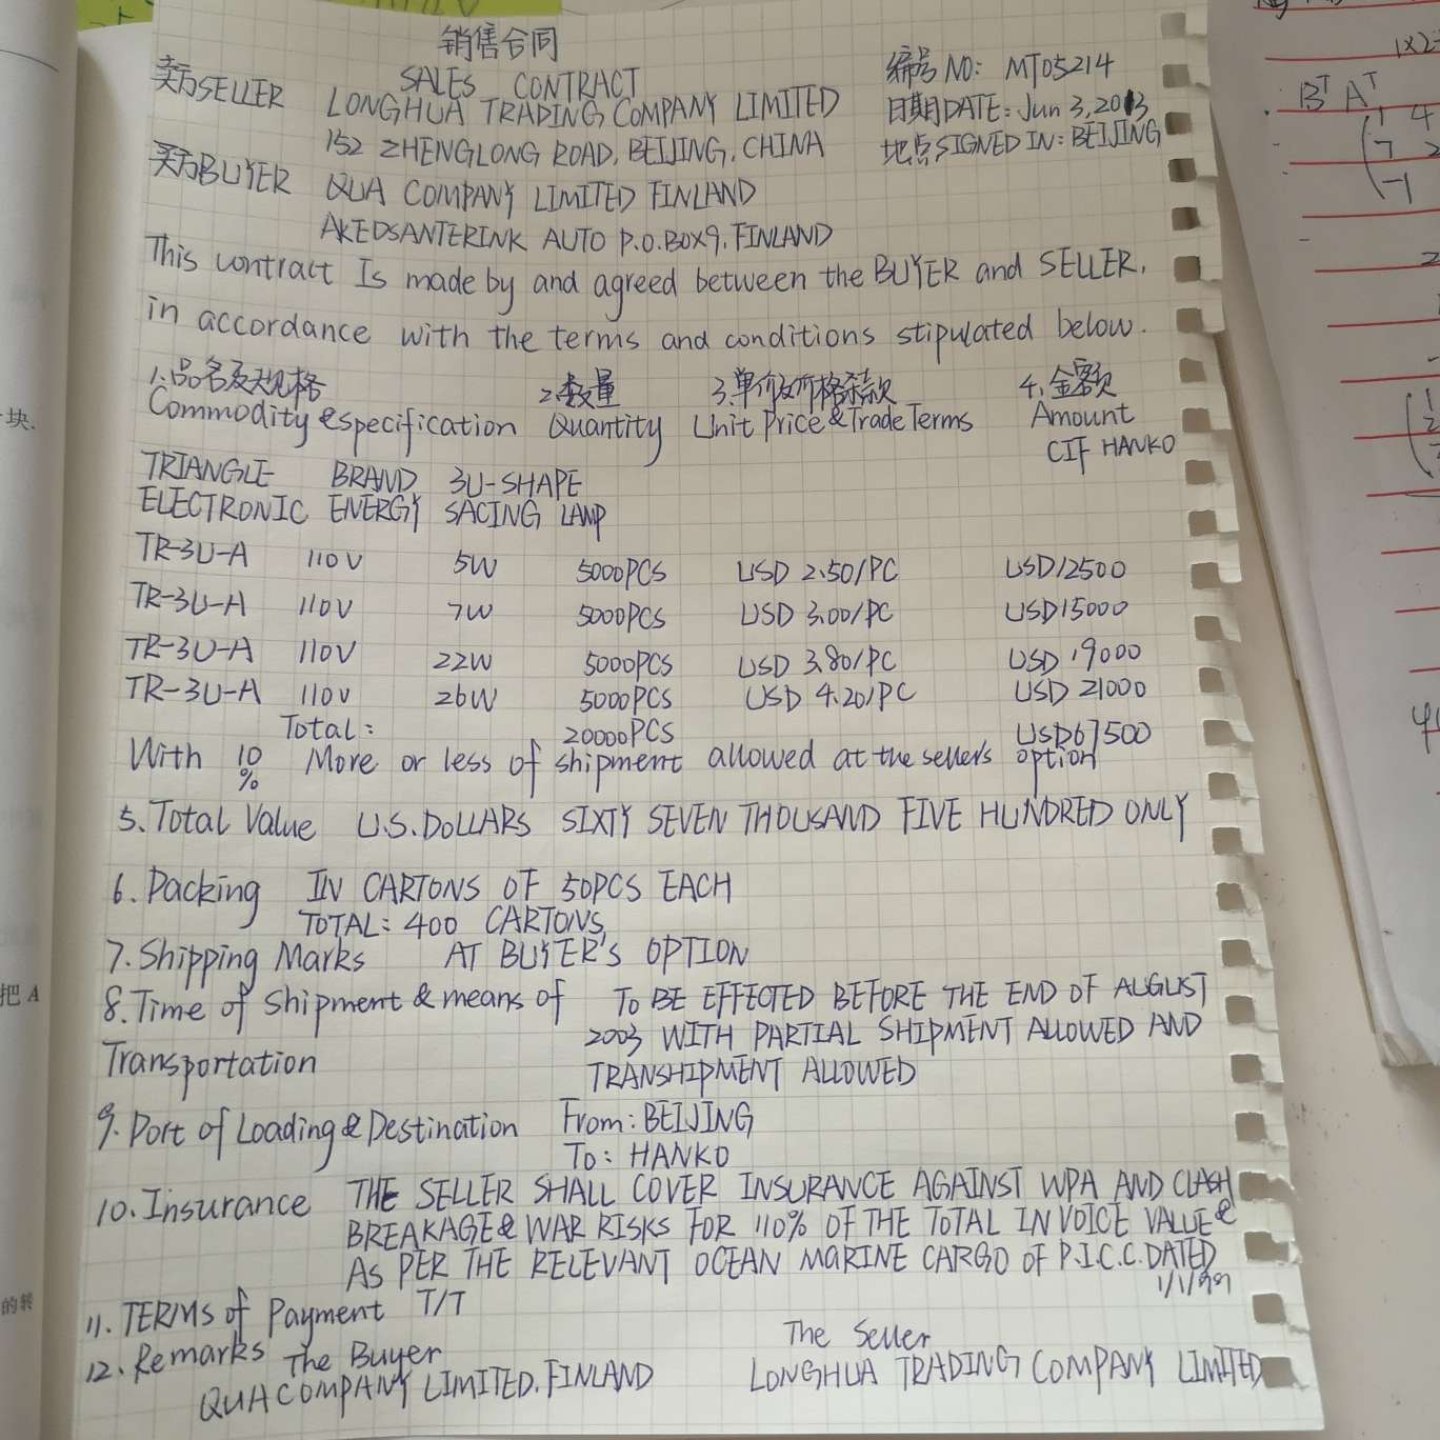 销售合同
SALES CONTRACT
编号 NO: MT05214
卖方SELLER LONGHUA TRADING COMPANY LIMITED
日期DATE: Jun 3,2013
152 ZHENGLONG ROAD, BEIJING, CHINA
地点SIGNED IN: BEIJING
买方BUYER QUA COMPANY LIMITED FINLAND
AKEDSANTERINK AUTO P.O.BOX9, FINLAND
This contract Is made by and agreed between the BUYER and SELLER,
in accordance with the terms and conditions stipulated below.
1.品名及规格 2.数量 3.单价及价格条款 4.金额
Commodity & specification Quantity Unit Price & Trade Terms Amount
CIF HANKO
TRIANGLE BRAND 3U-SHAPE
ELECTRONIC ENERGY SACING LAMP
TR-3U-A 110V 5W 5000PCS USD 2.50/PC USD12500
TR-3U-A 110V 7W 5000PCS USD 3.00/PC USD15000
TR-3U-A 110V 22W 5000PCS USD 3.80/PC USD 19000
TR-3U-A 110V 26W 5000PCS USD 4.20/PC USD 21000
Total: 20000PCS USD67500
With 10% More or less of shipment allowed at the sellers option
5.Total Value U.S.DOLLARS SIXTY SEVEN THOUSAND FIVE HUNDRED ONLY
6.Packing IN CARTONS OF 50PCS EACH
TOTAL: 400 CARTONS
7.Shipping Marks AT BUYER'S OPTION
8.Time of Shipment & means of TO BE EFFECTED BEFORE THE END OF AUGUST
2003 WITH PARTIAL SHIPMENT ALLOWED AND
Transportation TRANSHIPMENT ALLOWED
9.Port of Loading & Destination From: BEIJING
To: HANKO
10.Insurance THE SELLER SHALL COVER INSURANCE AGAINST WPA AND CLASH
BREAKAGE & WAR RISKS FOR 110% OF THE TOTAL INVOICE VALUE &
AS PER THE RELEVANT OCEAN MARINE CARGO OF P.I.C.C. DATED
1/1/99
11.TERMS of Payment T/T
12.Remarks The Buyer The Seller
QUA COMPANY LIMITED, FINLAND LONGHUA TRADING COMPANY LIMITED
块.
把 A
的转
B^T A^T